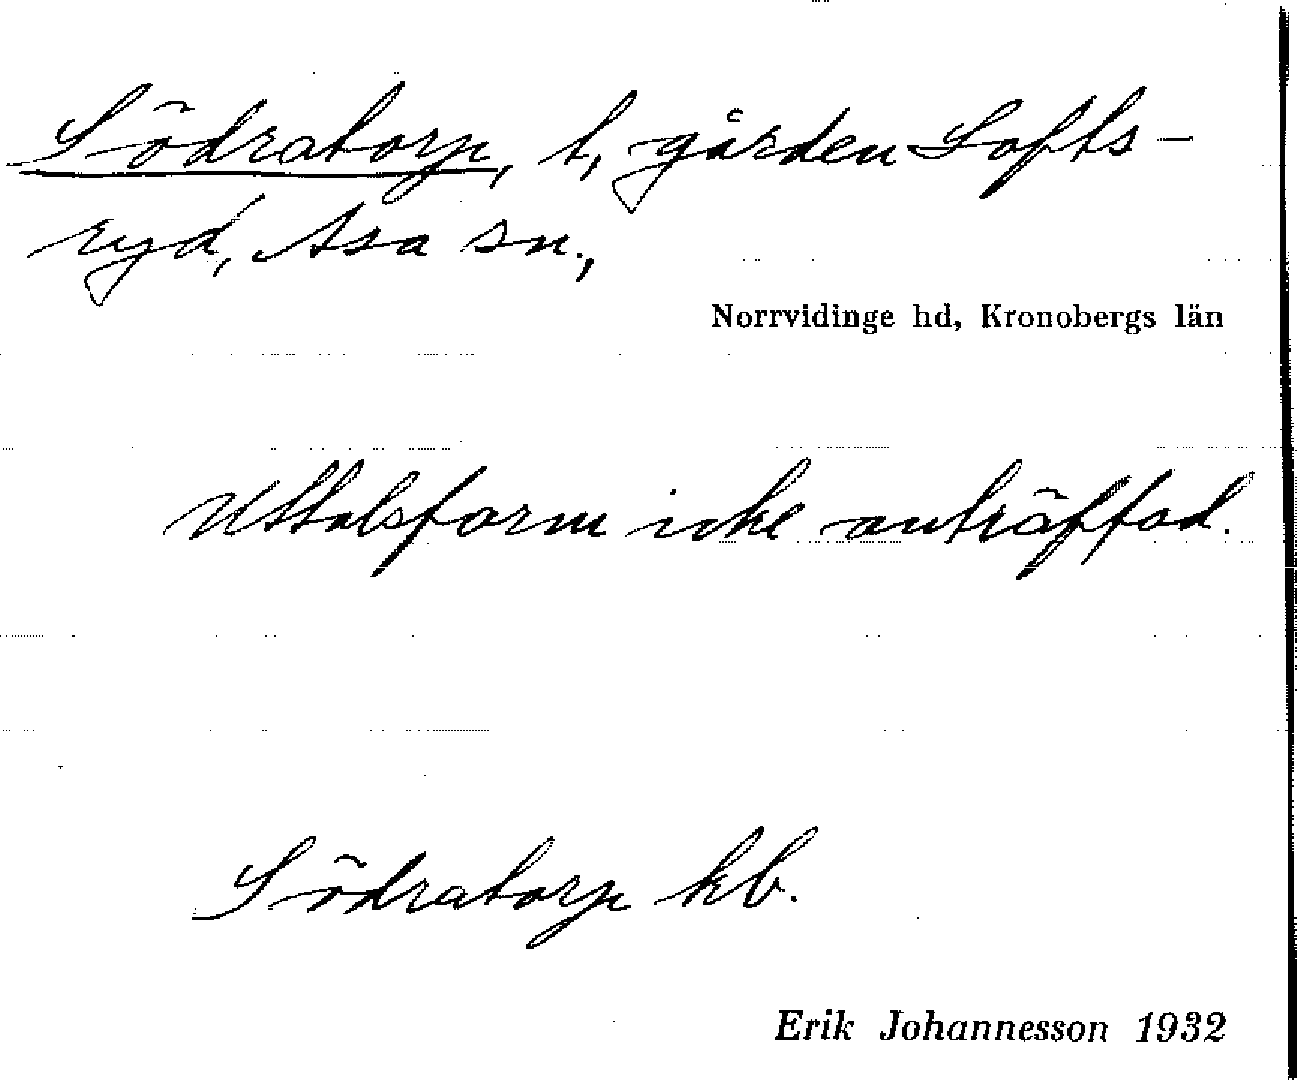 Södratorp, t, gården Lofts-
ryd, Asa sn.,
Norrvidinge hd, Kronobergs län
Uttalsform icke anträffad.
Södratorp kb.
Erik Johannesson 1932